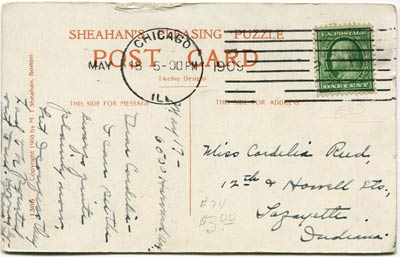 SHEAHAN'S TEASING PUZZLE
POST CARD
Twelve Designs
CHICAGO
MAY 18 5-00PM 1909
ILL
U.S. POSTAGE
ONE CENT
THIS SIDE FOR MESSAGE
THIS SIDE FOR ADDRESS
1306 Copyright 1908 by M. T. Sheahan, Boston
May 17 -
Dear Cordelia -
I can see the
moon quite
plainly now.
Miss Cordelia Reed,
12th & Howell Sts,
Lafayette
Indiana.
$3.00